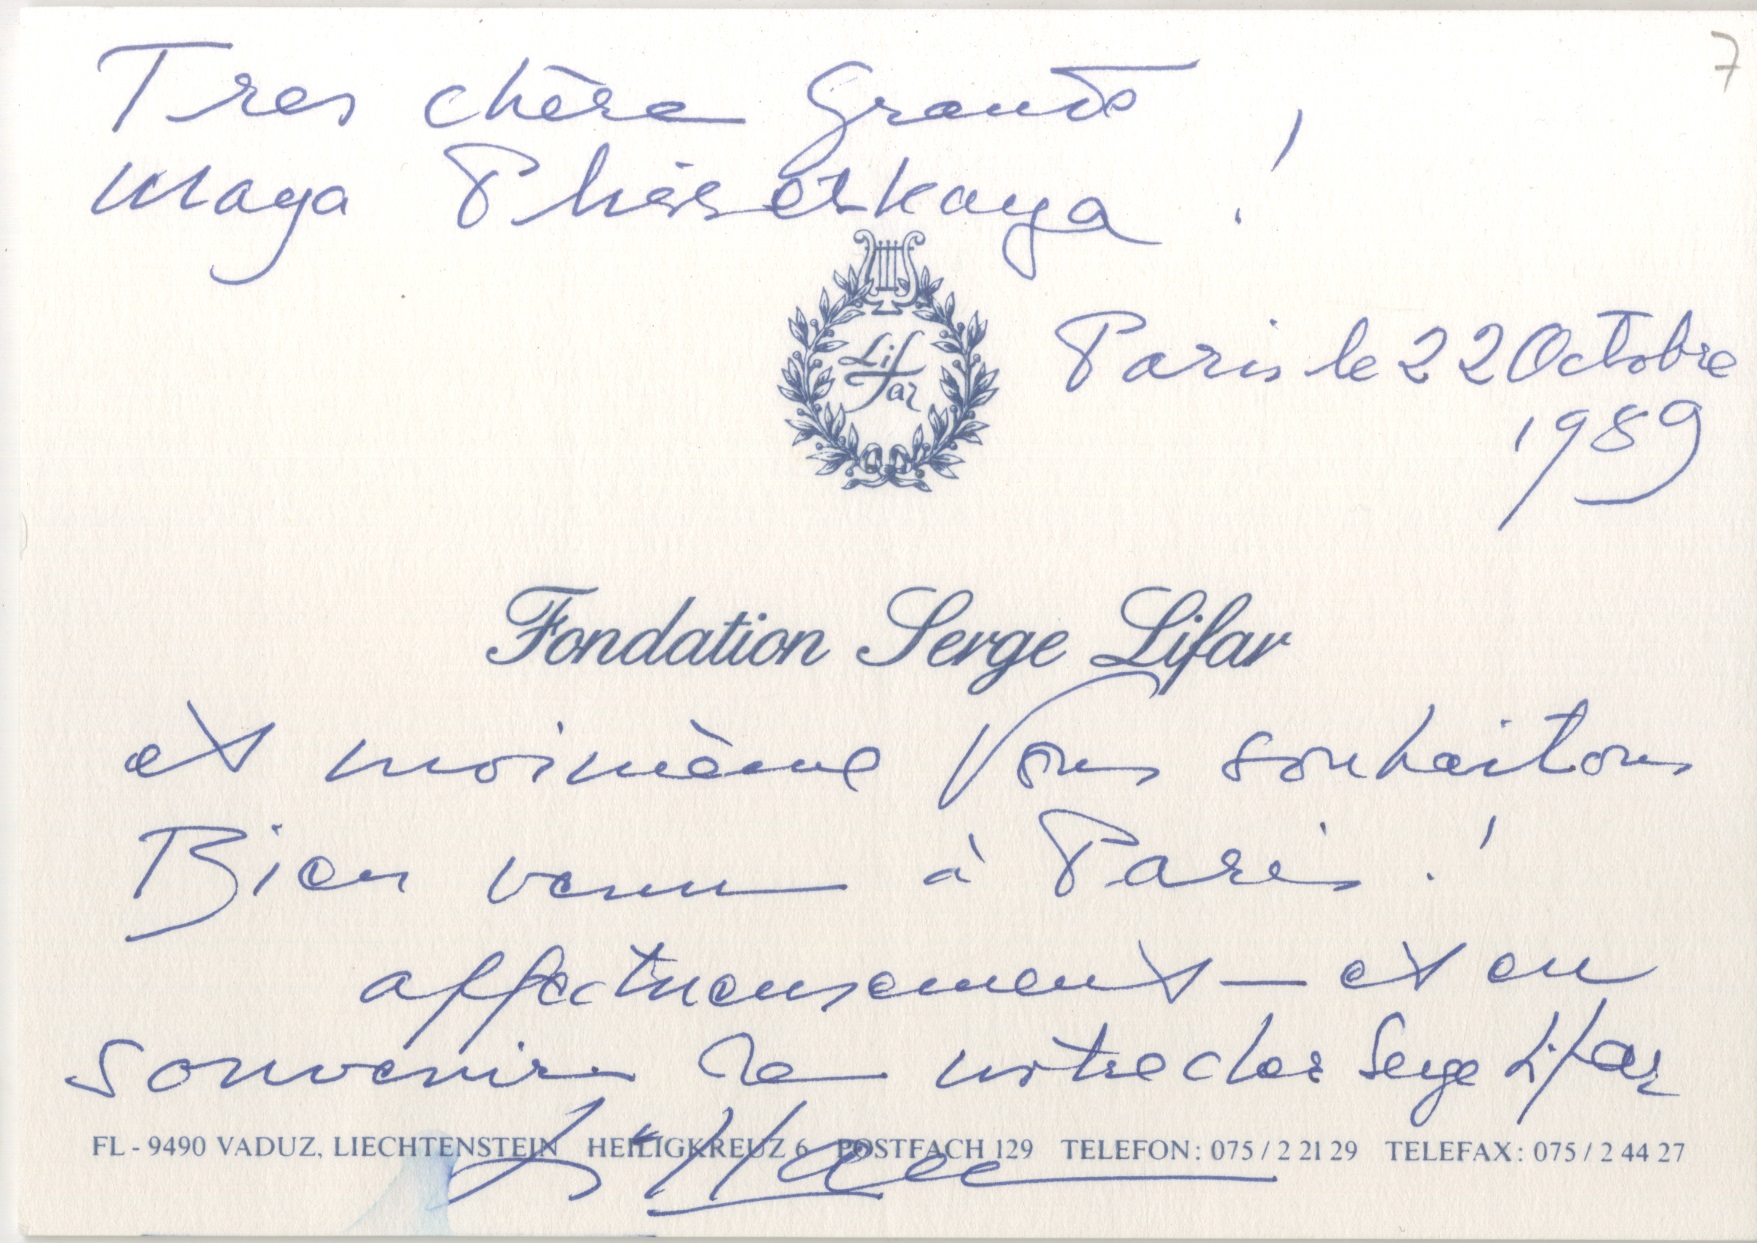 7
Tres chère Grande
Maya Plissetskaya !
Lif
far
Paris le 22 Octobre
1989
Fondation Serge Lifar
et moimème Vous souhaitons
Bien venue à Paris !
affectueusement – et en
souvenir de notre cher Serge Lifar
FL - 9490 VADUZ, LIECHTENSTEIN HEILIGKREUZ 6 POSTFACH 129 TELEFON: 075 / 2 21 29 TELEFAX: 075 / 2 44 27